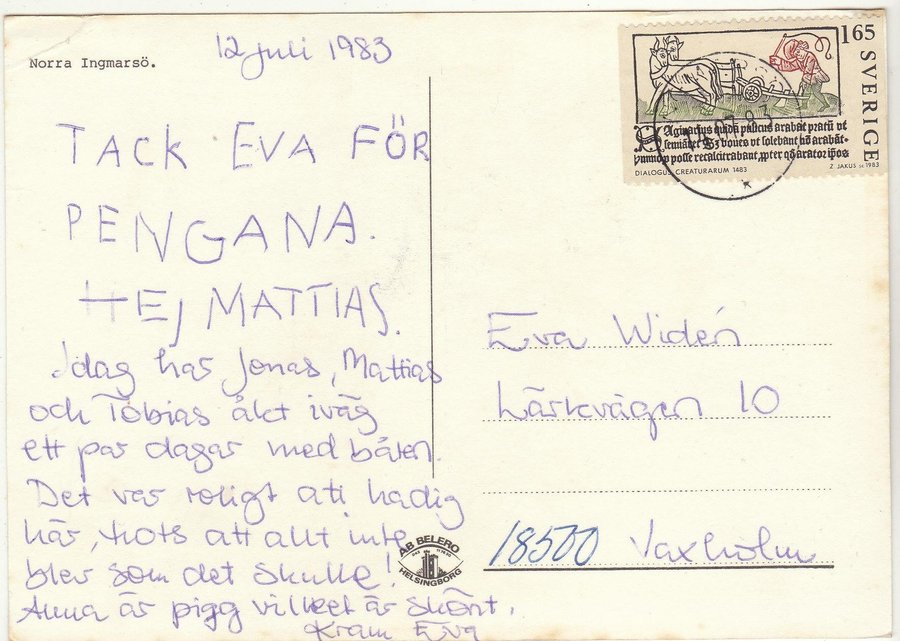 Norra Ingmarsö.
12 juli 1983
TACK EVA FÖR
PENGANA.
HEJ MATTIAS.
Idag har Jonas, Mattias
och Tobias åkt iväg
ett par dagar med båten.
Det var roligt att ha dig
här, trots att allt inte
blev som det skulle!
Anna är pigg vilket är skönt.
Kram Eva
165
SVERIGE
DIALOGUS CREATURARUM 1483
Z JAKUS SC 1983
07 83
Eva Widén
Lärkvägen 10
18500 Vaxholm
AB BELERO
HELSINGBORG